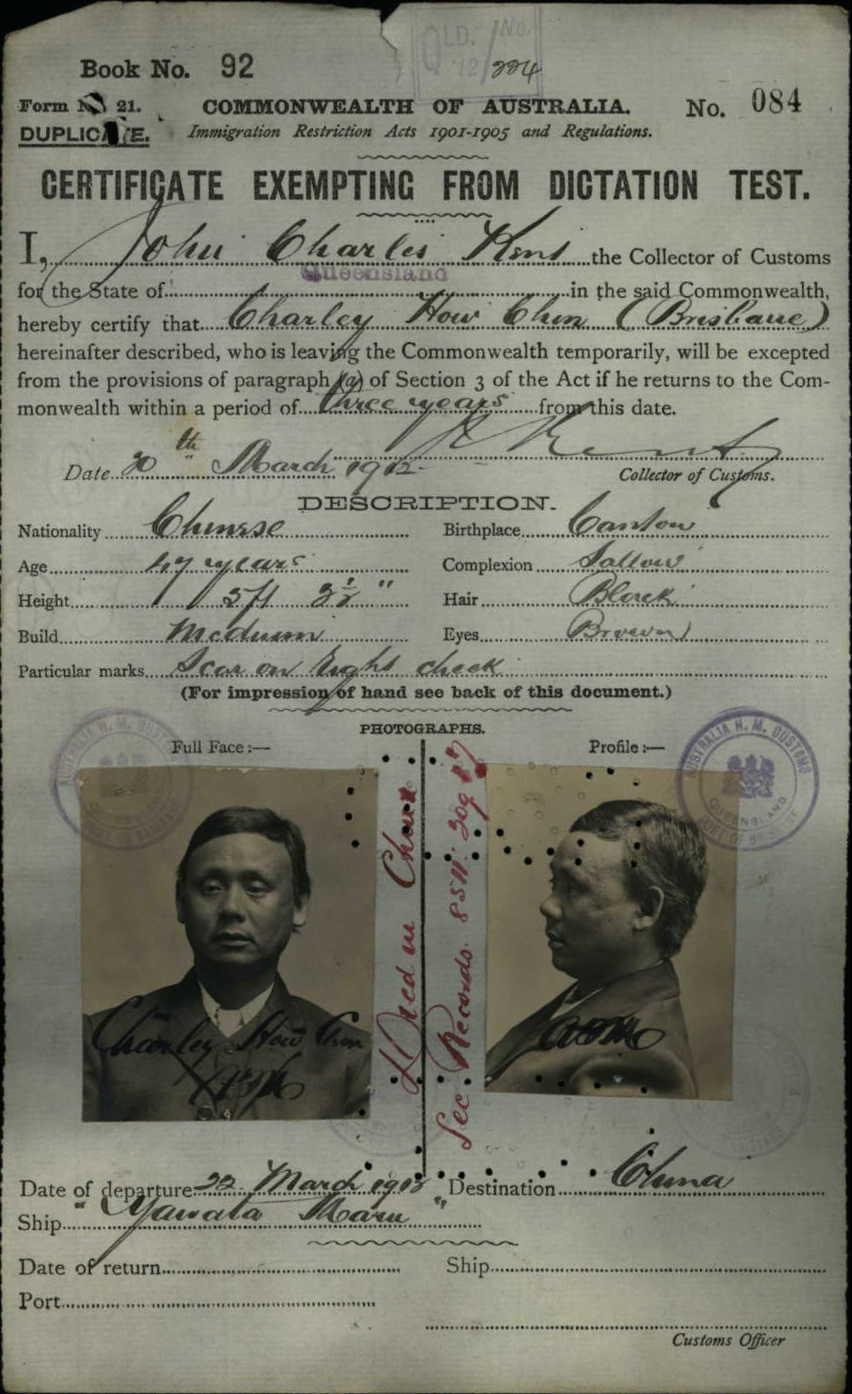 QLD. No.
Book No. 92
224
Form 21.
COMMONWEALTH OF AUSTRALIA.
No. 084
DUPLICATE.
Immigration Restriction Acts 1901-1905 and Regulations.
CERTIFICATE EXEMPTING FROM DICTATION TEST.
I, John Charles Kent the Collector of Customs
Queensland
for the State of in the said Commonwealth,
hereby certify that Charley How Chin (Brisbane)
hereinafter described, who is leaving the Commonwealth temporarily, will be excepted
from the provisions of paragraph (a) of Section 3 of the Act if he returns to the Com-
monwealth within a period of three years from this date.
Date 20th March 1912
Collector of Customs.
DESCRIPTION.
Nationality Chinese Birthplace Canton
Age 47 years Complexion Sallow
Height 5ft 2½" Hair Black
Build Medium Eyes Brown
Particular marks Scar on right cheek
(For impression of hand see back of this document.)
PHOTOGRAPHS.
Full Face :— Profile :—
AUSTRALIA H. M. CUSTOMS
QUEENSLAND
Died in China
Sec. Records.
Charley How Chin
Date of departure 22 March 1912 Destination China
Ship "Yawata Maru"
Date of return Ship
Port
Customs Officer